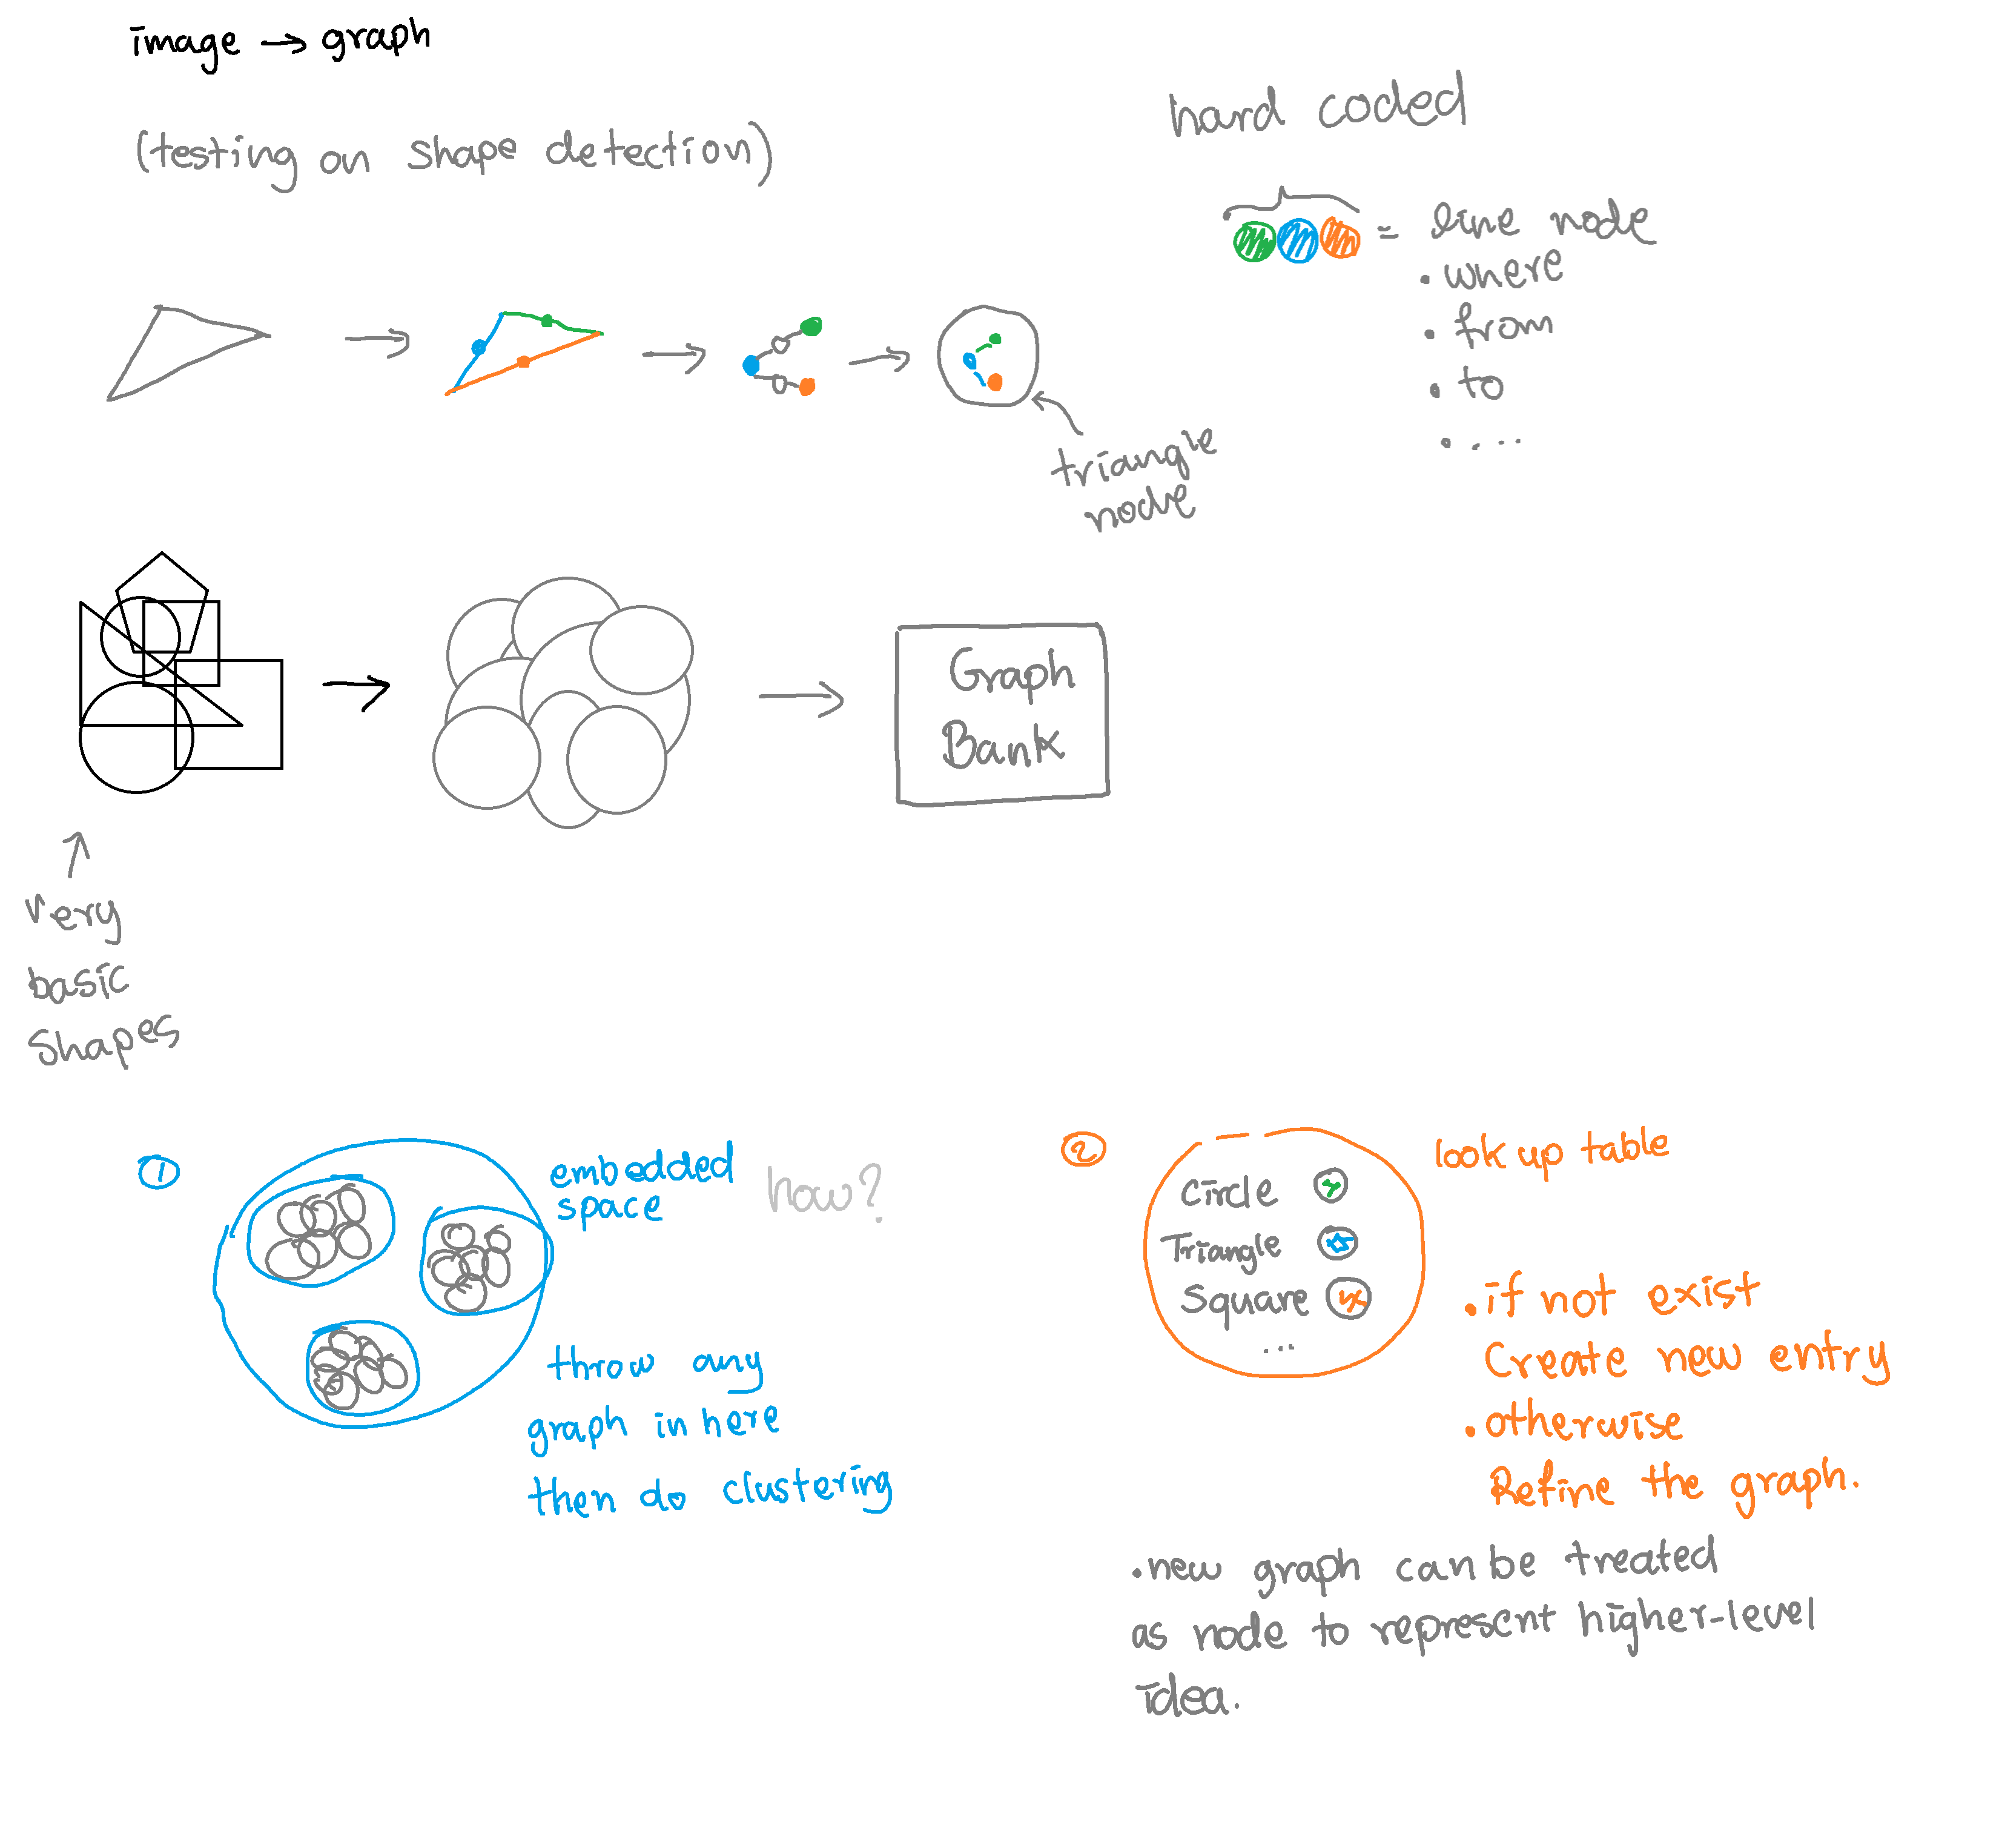 image → graph
(testing on shape detection)
hard coded
= line node
• where
• from
• to
• ....
triangle
node
Graph
Bank
very
basic
shapes
①
embedded
space
how?
throw any
graph in here
then do clustering
②
look up table
Circle
Triangle
Square
...
• if not exist
Create new entry
• otherwise
Refine the graph.
• new graph can be treated
as node to represent higher-level
idea.